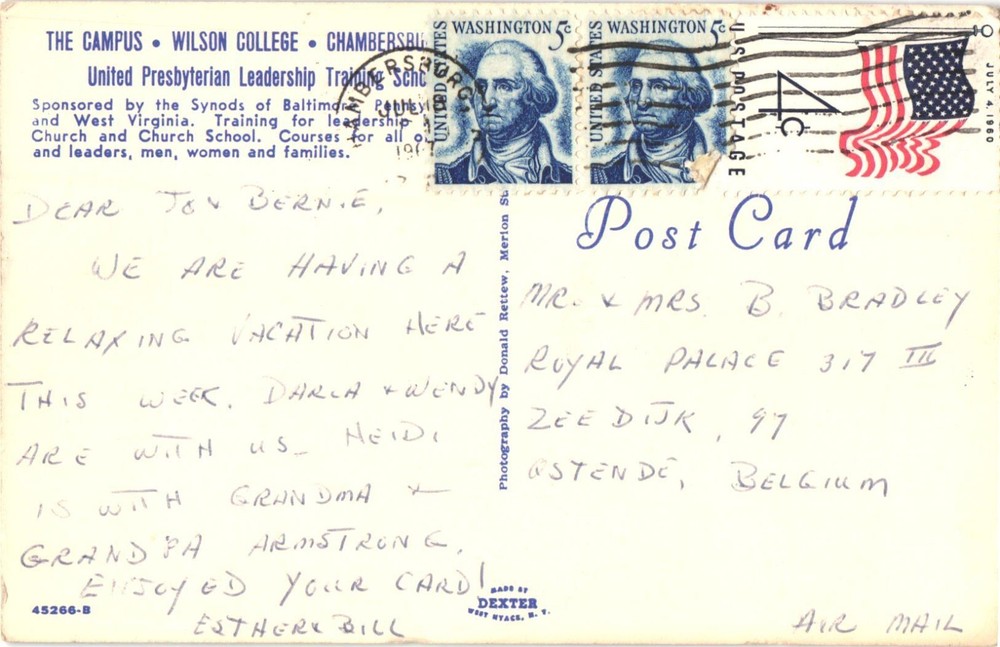 THE CAMPUS • WILSON COLLEGE • CHAMBERSBU
United Presbyterian Leadership Training Scho
Sponsored by the Synods of Baltimore, Pennsy
and West Virginia. Training for leadership
Church and Church School. Courses for all o
and leaders, men, women and families.
CHAMBERSBURG
JUL
UNITED STATES
WASHINGTON 5c
UNITED STATES
WASHINGTON 5c
U.S. POSTAGE
4c
JULY 4, 1960
DEAR JO & BERNIE,
WE ARE HAVING A
RELAXING VACATION HERE
THIS WEEK. DARLA & WENDY
ARE WITH US. HEIDI
IS WITH GRANDMA &
GRANDPA ARMSTRONG.
ENJOYED YOUR CARD!
ESTHER & BILL
45266-B
Photography by Donald Rettew, Merion St
MADE BY
DEXTER
WEST NYACK, N. Y.
Post Card
MR. & MRS. B. BRADLEY
ROYAL PALACE 317 III
ZEEDIJK, 97
OSTENDE, BELGIUM
AIR MAIL